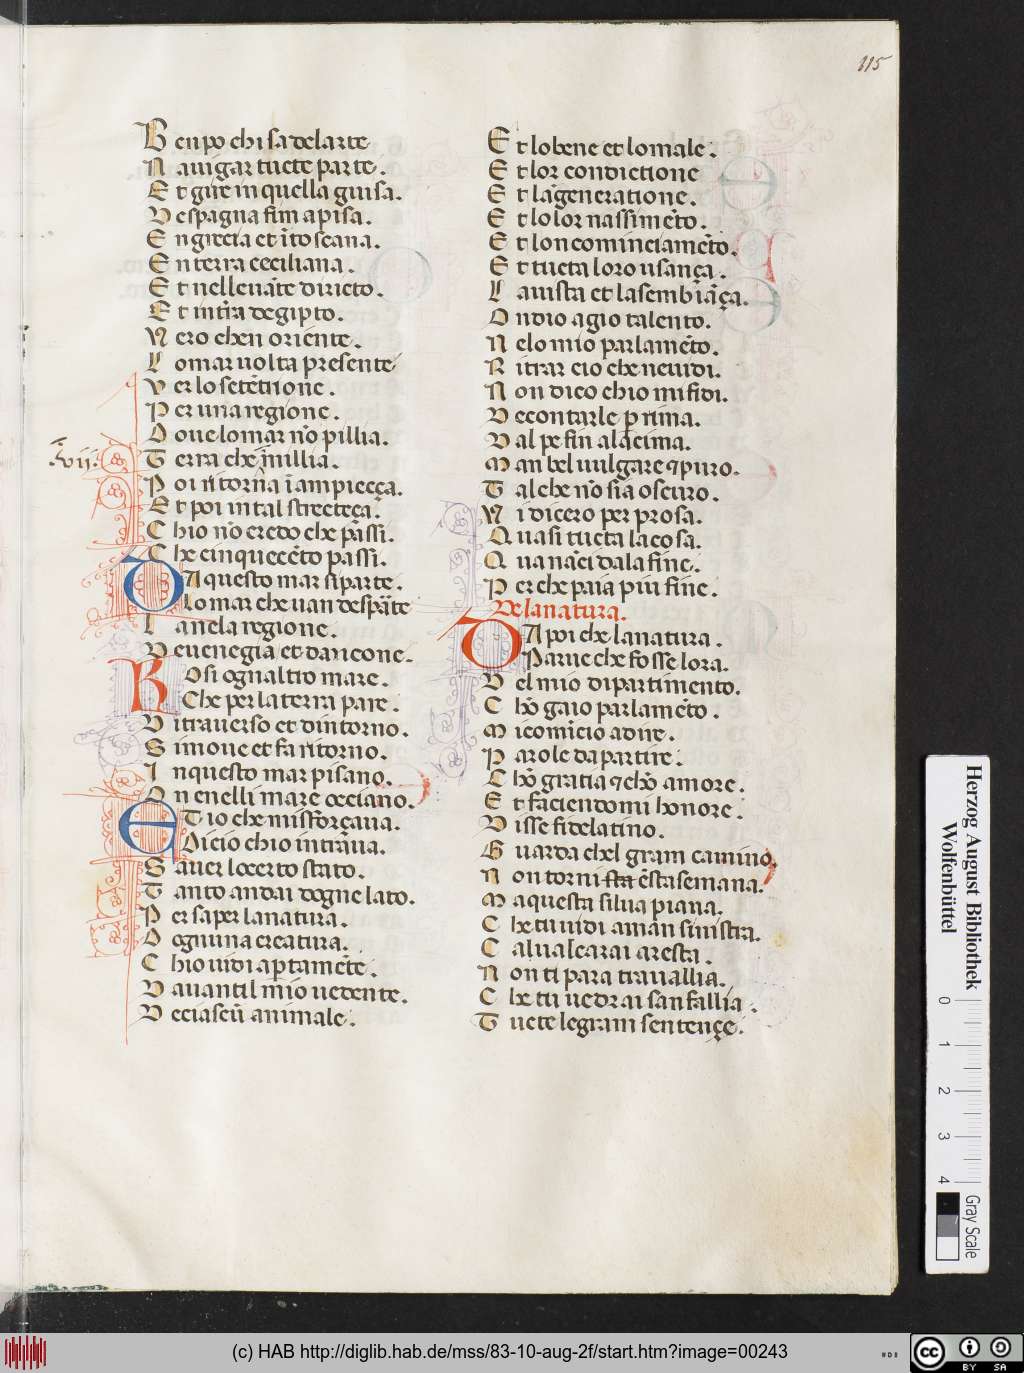 115
B en po chi sa delarte
N auigar tucte parte.
E t gire in quella guisa.
D espagna fin a pisa.
E ngrecia et ītoscana.
E nterra ceciliana.
E t nelleuāte diricto.
E t intr̄a degipto.
N ero chen oriente.
L o mar uolta presente
V er lo setētrione.
P er una regione.
D oue lo mar nō pillia.
.vii.
T erra che millia.
P oi ritorna ī ampiecça.
E t poi in tal strecteça.
C hio nō credo che passi.
C he cinquecēto passi.
DA questo mar si parte.
Lo mar che uan despāte
L anela regione.
D euenegia et dancone.
COsi ognaltro mare.
Che per la terra pare.
D i trauerso et dintorno.
S i moue et fa ritorno.
I nquesto mar pisano.
O nenelli mare occiano.
ET io che misforçaua.
Dicio chio intrāua.
S auer locerto stato.
T anto andai dogne lato.
P er saper la natura.
D ognuna creatura.
C hio uidi aptamēte.
D auantil mio uedente.
D eciascū animale.
E t lo bene et lo male.
E t lor condictione
E t lagēneratione.
E t lo lor nassimēto.
E t lon cominciamēto.
E t tucta loro usança.
L a uista et la sembiāça.
O ndio agio talento.
N elo mio parlamēto.
R itrar cio che neuidi.
N on dico chio mi fidi.
D e contarle p rima.
D al pe fin ala cima.
M an bel uulgare ⁊ puro.
T al che nō sia oscuro.
N i dicero per prosa.
Q uasi tucta la cosa.
Q uanāci dala fine.
P er che paia piu fine.
De la natura.
DA poi che la natura.
Parue che fosse lora.
D el mio dipartimento.
C hō gaio parlamēto.
M i comīcio a dire.
P arole da partire.
C hō gratia ⁊ chō amore.
E t faciendomi honore.
D isse fi de latino.
G uarda chel gram camino.
N on torni sta ēsta semana.
M a questa silua piana.
C he tu uidi aman sinistra.
C alualcarai a resta.
N on ti para trauallia.
C he tu uedrai san fallia.
T ucte le gram sentençe.
Herzog August Bibliothek
Wolfenbüttel
0 1 2 3 4
Gray Scale
(c) HAB http://diglib.hab.de/mss/83-10-aug-2f/start.htm?image=00243
cc BY SA